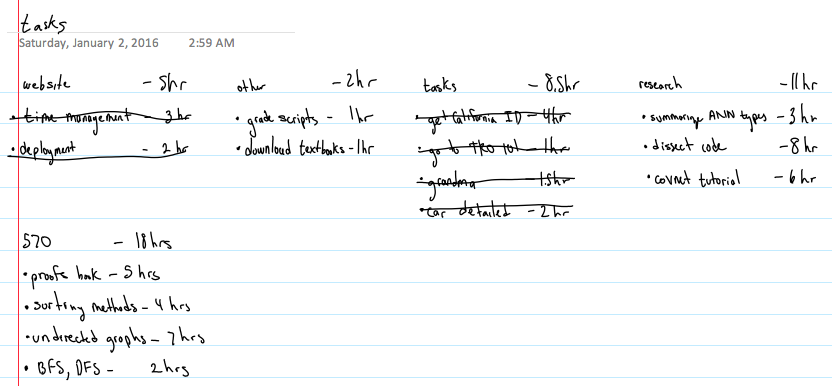 tasks
Saturday, January 2, 2016 2:59 AM
website - 5hr
• time management - 3 hr
• deployment - 2 hr
other - 2hr
• grade scripts - 1hr
• download textbooks - 1hr
tasks - 8.5hr
• get California ID - 4hr
• go to TKO 101 - 1hr
• grandma - 1.5hr
• car detailed - 2 hr
research - 11hr
• summarize ANN types - 3hr
• dissect code - 8hr
• covnet tutorial - 6hr
570 - 18hrs
• proofs book - 5 hrs
• sorting methods - 4 hrs
• undirected graphs - 7hrs
• BFS, DFS - 2hrs